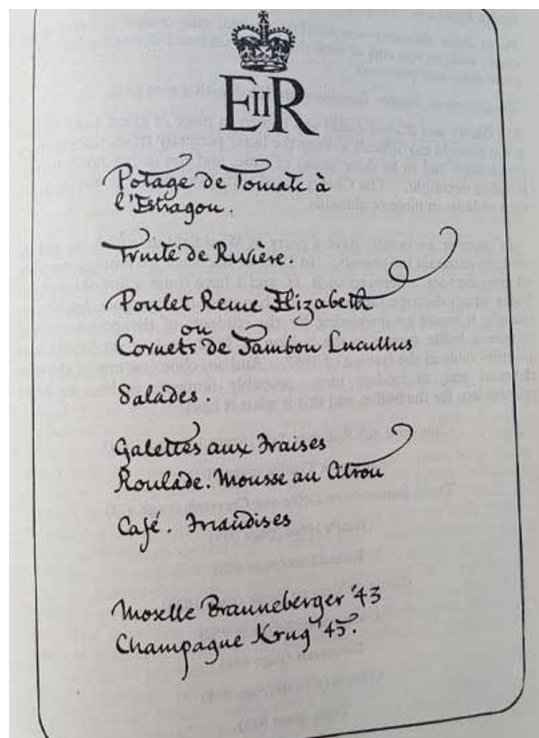 EIIR
Potage de Tomate à
l'Estragon.
Truite de Rivière.
Poulet Reine Elizabeth
ou
Cornets de Jambon Lucullus
Salades.
Galettes aux Fraises
Roulade. Mousse au Citron
Café. Friandises
Moselle Brauneberger '43
Champagne Krug '45.